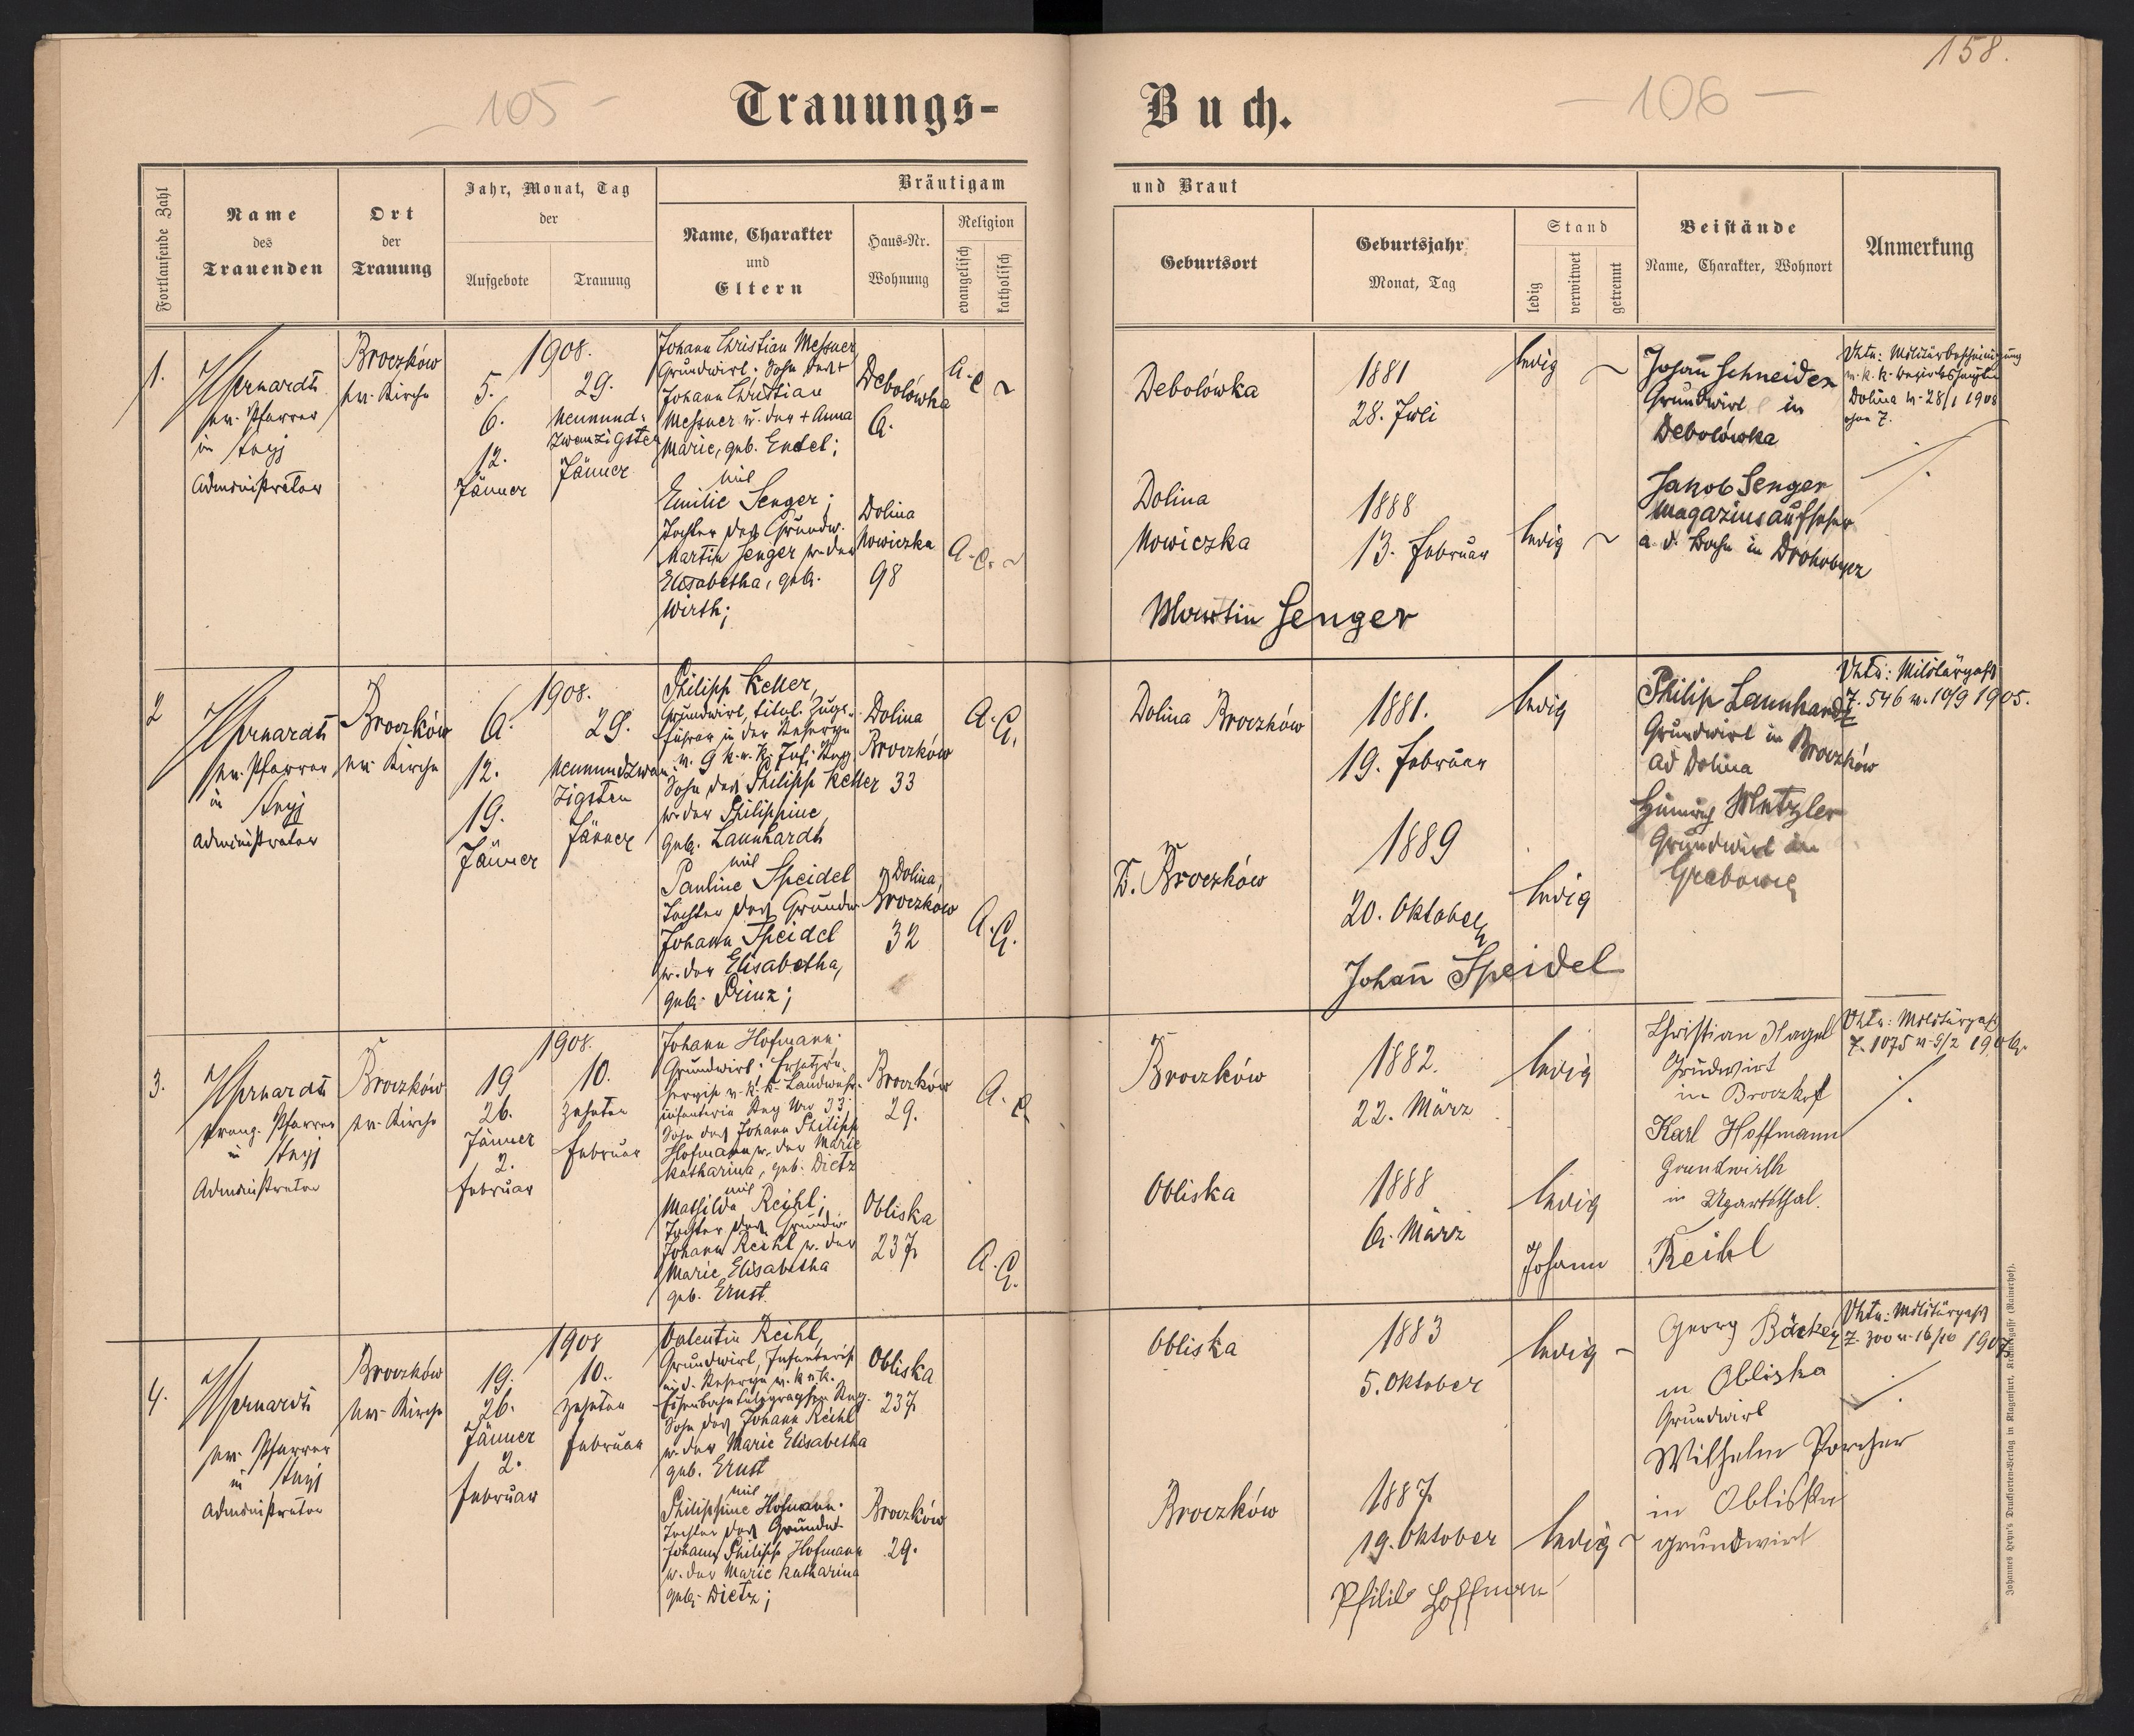 158.
- 105 -
- 106 -
Trauungs-
Buch.
Fortlaufende Zahl
Name
des
Trauenden
Ort
der
Trauung
Jahr, Monat, Tag
der
Aufgebote
Trauung
Bräutigam
Name, Charakter
und
Eltern
Haus-Nr.
Wohnung
Religion
evangelisch
katholisch
und Braut
Geburtsort
Geburtsjahr
Monat, Tag
Stand
ledig
verwitwet
getrennt
Beistände
Name, Charakter, Wohnort
Anmerkung
1.
ev. Pfarrer
in Stryj
Administrator
Broczków
ev. Kirche
1908.
5.
6.
12.
Jänner
29.
Neunund-
zwanzigster
Jänner
Johann Christian Messner
Grundwirt; Sohn des +
Johann Christian
Messner u. der + Anna
Marie, geb. Endel;
mit
Emilie Senger;
Tochter des Grundw.
Martin Senger u. der
Elisabetha, geb.
Wirth;
Debolówka
6.
Dolina
Nowiczka
98
A. C.
A. C.
Debolówka
1881
28. Juli
ledig
Dolina
Nowiczka
1888
13. Februar
ledig
Martin Senger
Johann Schneider
Grundwirt in
Debolówka
Jakob Senger
Magazinsaufseher
a. d. Bahn in Drohobycz
Dolina v. 28/1 1908
2
ev. Pfarrer
in Stryj
Administrator
Broczków
ev. Kirche
1908.
6.
12.
19.
Jänner
29.
Neunundzwan-
zigsten
Jänner
Philipp Keller,
Grundwirt, titul. Zugs-
führer in der Reserve
Sohn des Philipp Keller
u. der Philippine,
geb. Launhardt
mit
Pauline Speidel
Tochter des Grundw.
Johann Speidel
u. der Elisabetha,
geb. Prinz;
Dolina
Broczków
33
Dolina,
Broczków
32
A. C.
A. C.
Dolina Broczków
1881.
19. Februar
ledig
D. Broczków
1889
20. Oktober
ledig
Johann Speidel
Philip Launhardt
Grundwirt in Broczków
ad Dolina
Metzler
Grundwirt in
Vhtn: Militärpaß
Z. 546 v. 10/9 1905.
3.
evang. Pfarrer
in Stryj
Administrator
Broczków
ev. Kirche
1908.
19
26.
Jänner
2.
Februar
10.
zehnten
Februar
Johann Hofmann;
Grundwirt;
Sohn des Johann Philipp
Hofmann u. der Marie
Katharina, geb. Dietz
mit
Mathilde Reihl;
Tochter des Grundw.
Johann Reihl u. der
Marie Elisabetha
geb. Ernst.
Broczków
29.
Obliska
237
A. C.
A. C.
Broczków
1882.
22. März
ledig
Obliska
1888
6. März
ledig
Johann Reihl
Christian Nagel
Grundwirt
in
Karl Hoffmann
Grundwirth
in Ugartsthal.
Vhtn: Militärpaß
Z. 1075 v. 9/2 1906.
4.
ev. Pfarrer
in Stryj
Administrator
Broczków
ev. Kirche
1908
19.
26.
Jänner
2.
Februar
10.
zehnten
Februar
Valentin Reihl,
Grundwirt, Infanterist
Sohn des Johann Reihl
u. der Marie Elisabetha
geb. Ernst
mit
Philippine Hofmann.
Tochter des Grundw.
Johann Philipp Hofmann
u. der Marie Katharina
geb. Dietz;
Obliska
237
Broczków
29.
Obliska
1883
5. Oktober
ledig
Broczków
1887
19. Oktober
ledig
Georg Bäcker
in Obliska
Grundwirt
Wilhelm
in Obliska
grundwirt
Vhtn: Militärpaß
Z. 300 v. 16/10 1907.
Johannes Heyn's Drucksorten-Verlag in Klagenfurt, Kramergasse (Rainerhof).